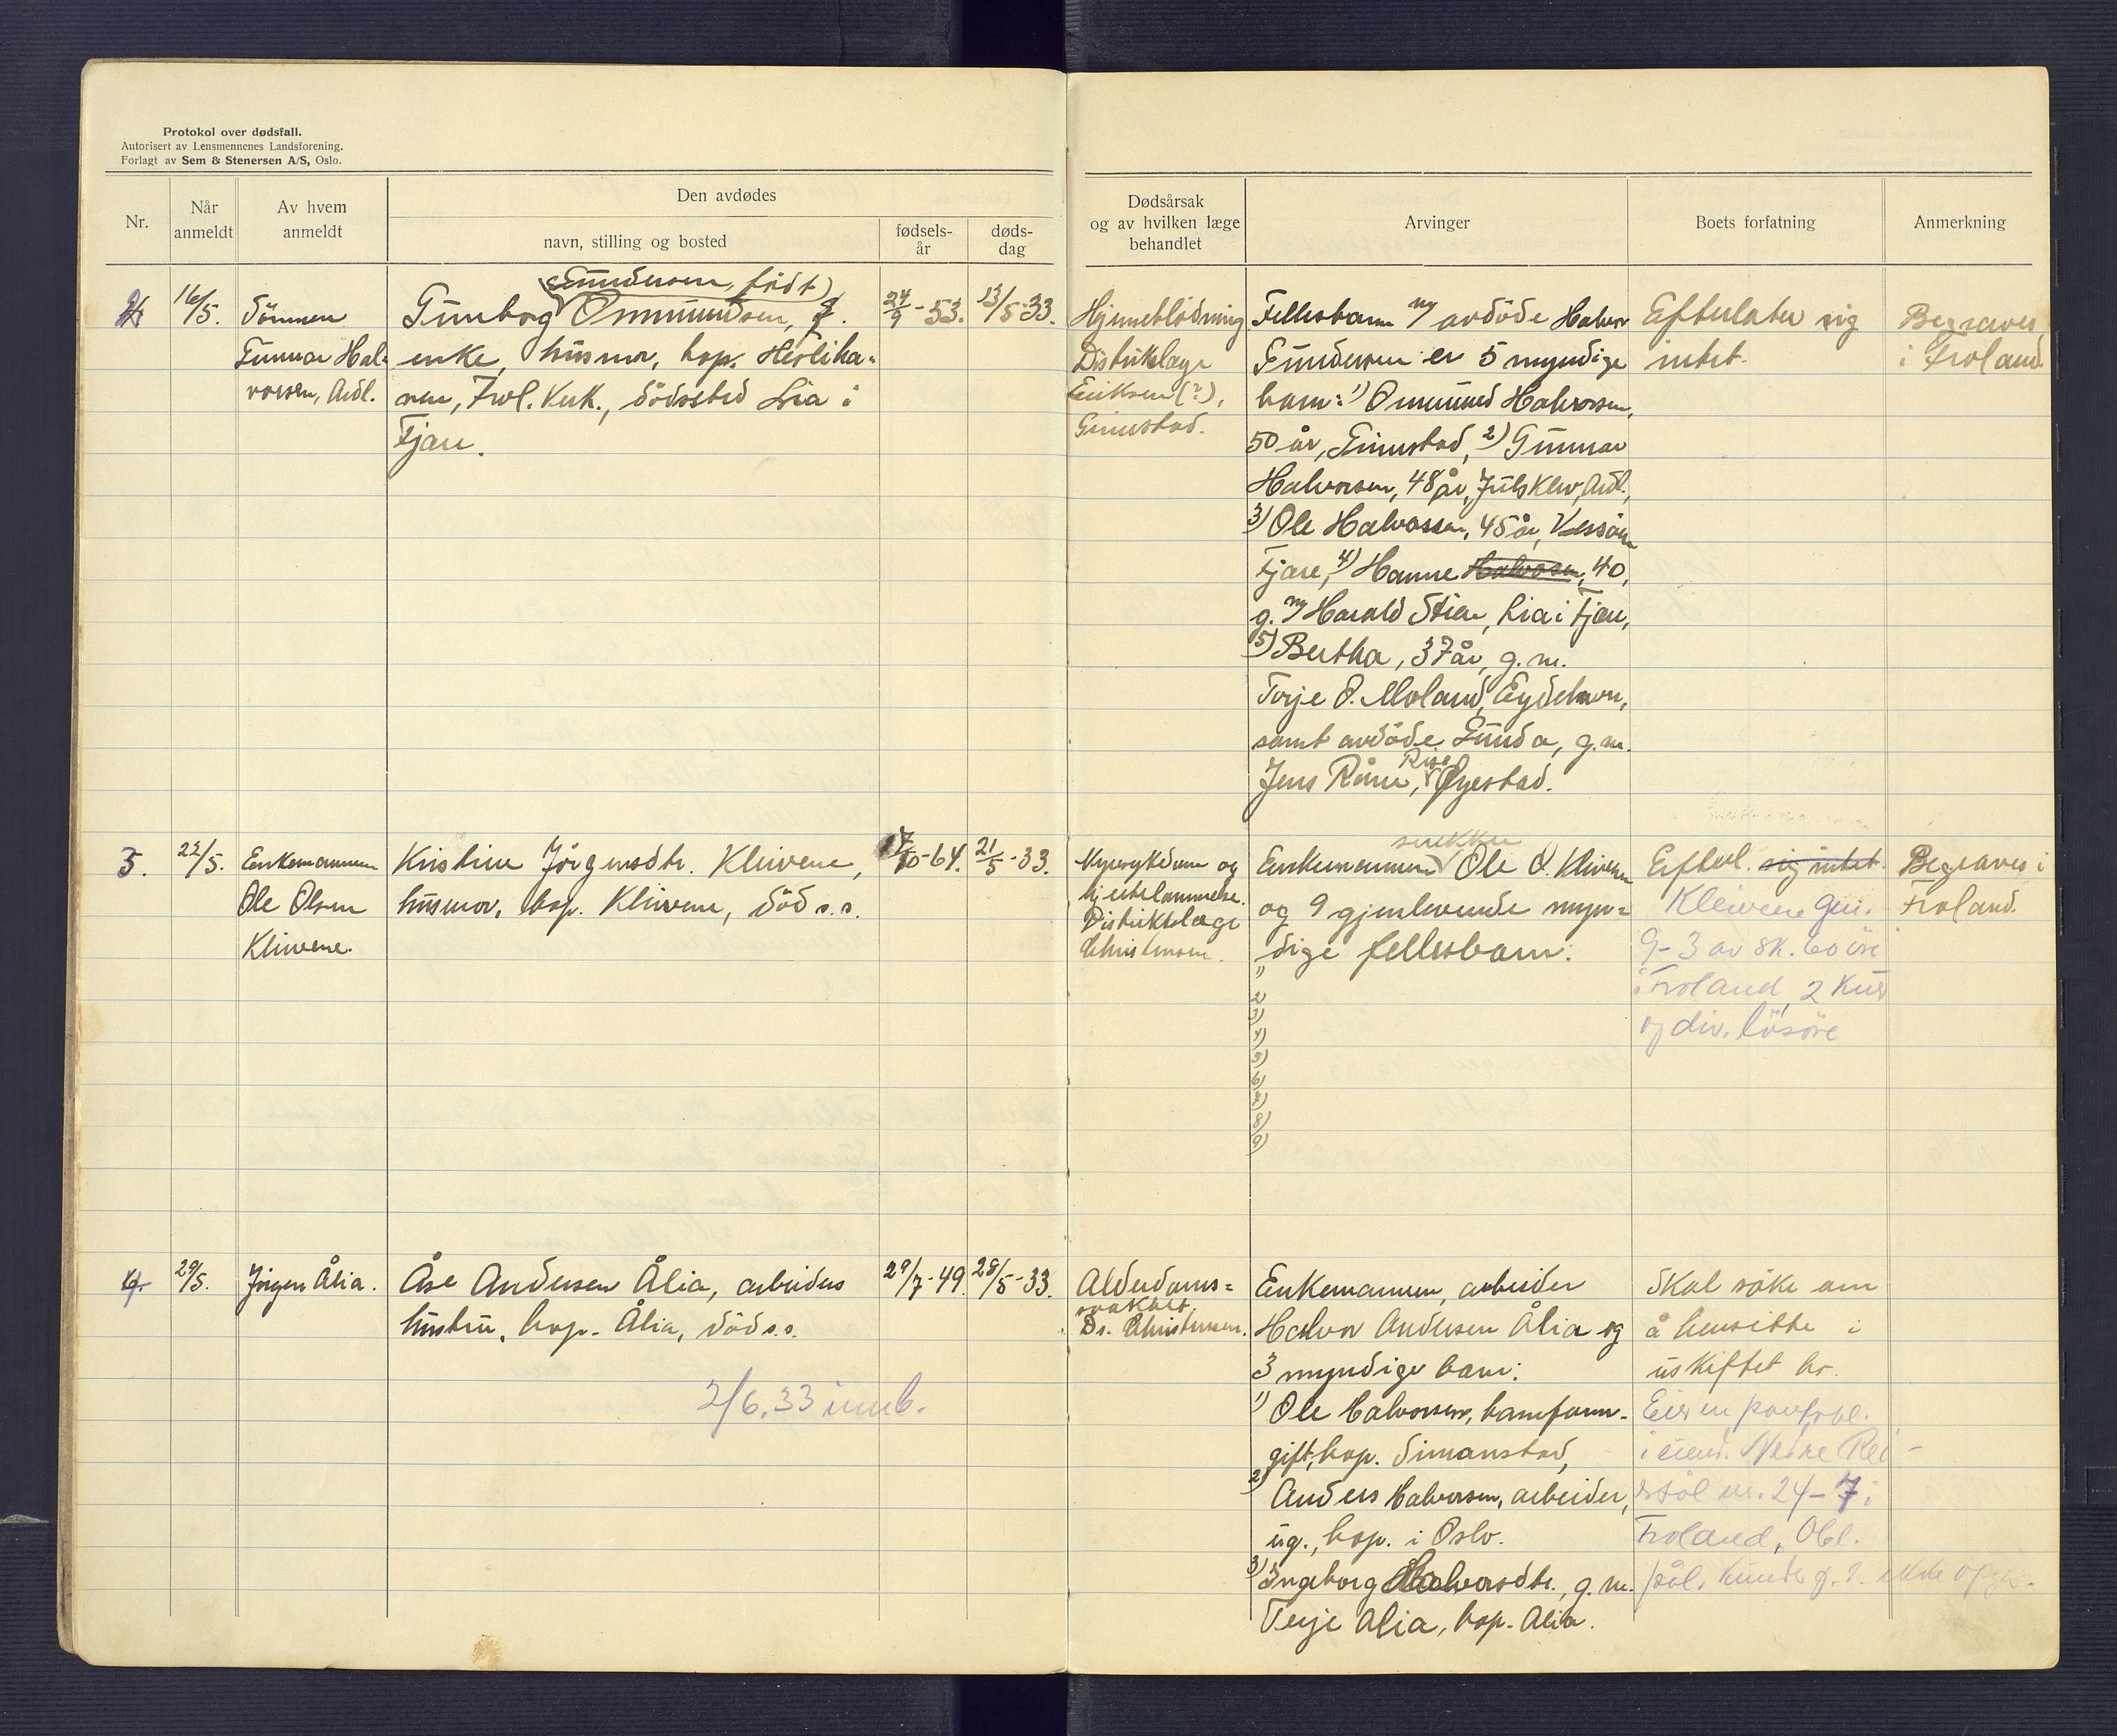 Protokol over dødsfall.
Autorisert av Lensmennenes Landsforening.
Forlagt av Sem & Stenersen A/S, Oslo.
Nr.
Når anmeldt
Av hvem anmeldt
Den avdødes
navn, stilling og bosted
fødsels-
år
døds-
dag
Dødsårsak
og av hvilken læge
behandlet
Arvinger
Boets forfatning
Anmerkning
16/5.
Sönnen
Gunnar Hal-
vorsen, Ardl.
(Gundersen, född)
Gunborg Ommundsen,
enke, husmor, bop. Hesliha-
ven, Frol. Kirk., dödssted Lia i
Fjære.
24/9-53.
13/5-33.
Hjerneblödning
Distriktslæge
Eriksen(?),
Grimstad.
Fellesbarn m/ avdöde Halvor
Gundersen er 5 myndige
barn: 1) Ommund Halvorsen,
50 år, Grimstad, 2) Gunnar
Halvorsen, 48 år, Julsklev, Ardl.,
3) Ole Halvorsen, 45 år, Vessöen
Fjære, 4) Hanne Halvorsen, 40,
g. m/ Harald Stien, Lia i Fjære,
5) Bertha, 37 år, g. m.
Torje O. Moland, Eydehavn,
samt avdöde Gunda, g. m.
Rise
Jens Råne, Øyestad.
Efterlater sig
intet.
Begraves
i Froland
3.
22/5.
Enkemannen
Ole Olsen
Kleivene.
Kristine Jörgensdtr. Kleivene,
husmor, bop. Kleivene, död s.s.
17/10-64.
21/5-33.
Nyresykdom og
hjertelammelse.
Distriktslæge
Christensen.
snekker
Enkemannen Ole O. Kleivene
og 9 gjenlevende myn-
dige fellesbarn:
1)
2)
3)
4)
5)
6)
7)
8)
9)
Efterl. sig intet.
Kleivene gnr.
9-3 av sk. 60 öre
i Froland, 2 kuer
og div. lösöre
Begraves i
Froland.
4.
29/5.
Jörgen Ålia.
Åse Andersen Ålia, arbeiders
hustru, bop. Ålia, död s.s.
2/6.33 innb.
29/7-49.
28/5-33.
Alderdoms-
svakhet.
Dr. Christensen.
Enkemannen, arbeider
Halvor Andersen Ålia og
3 myndige barn:
1) Ole Halvorsen, barnfarm-
gift, bop. Simonstad,
2) Anders Halvorsen, arbeider,
ug., bop. i Oslo.
3) Ingeborg Halvorsdtr., g. m.
Terje Ålia, bop. Ålia.
Skal söke om
å hensitte i
uskiftet bo.
Eier en pantobl.
i eiend. Nedre Rei-
erstöl nr. 24-7 i
Froland, Obl.